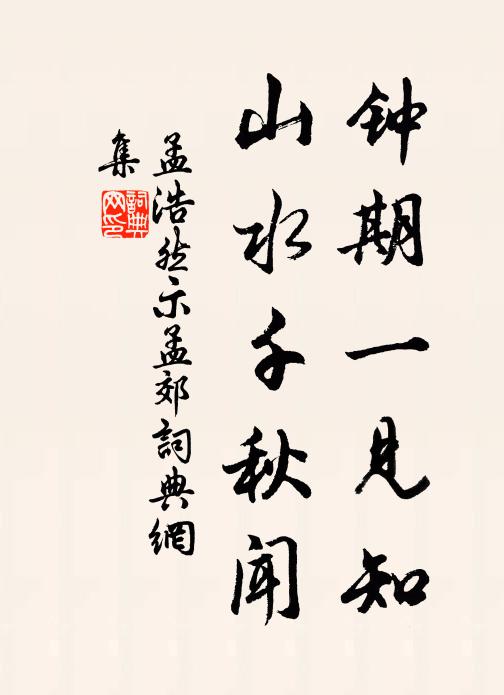 钟期一见知
山水千秋闻
孟浩然示孟郊词典網
集
詞典網印